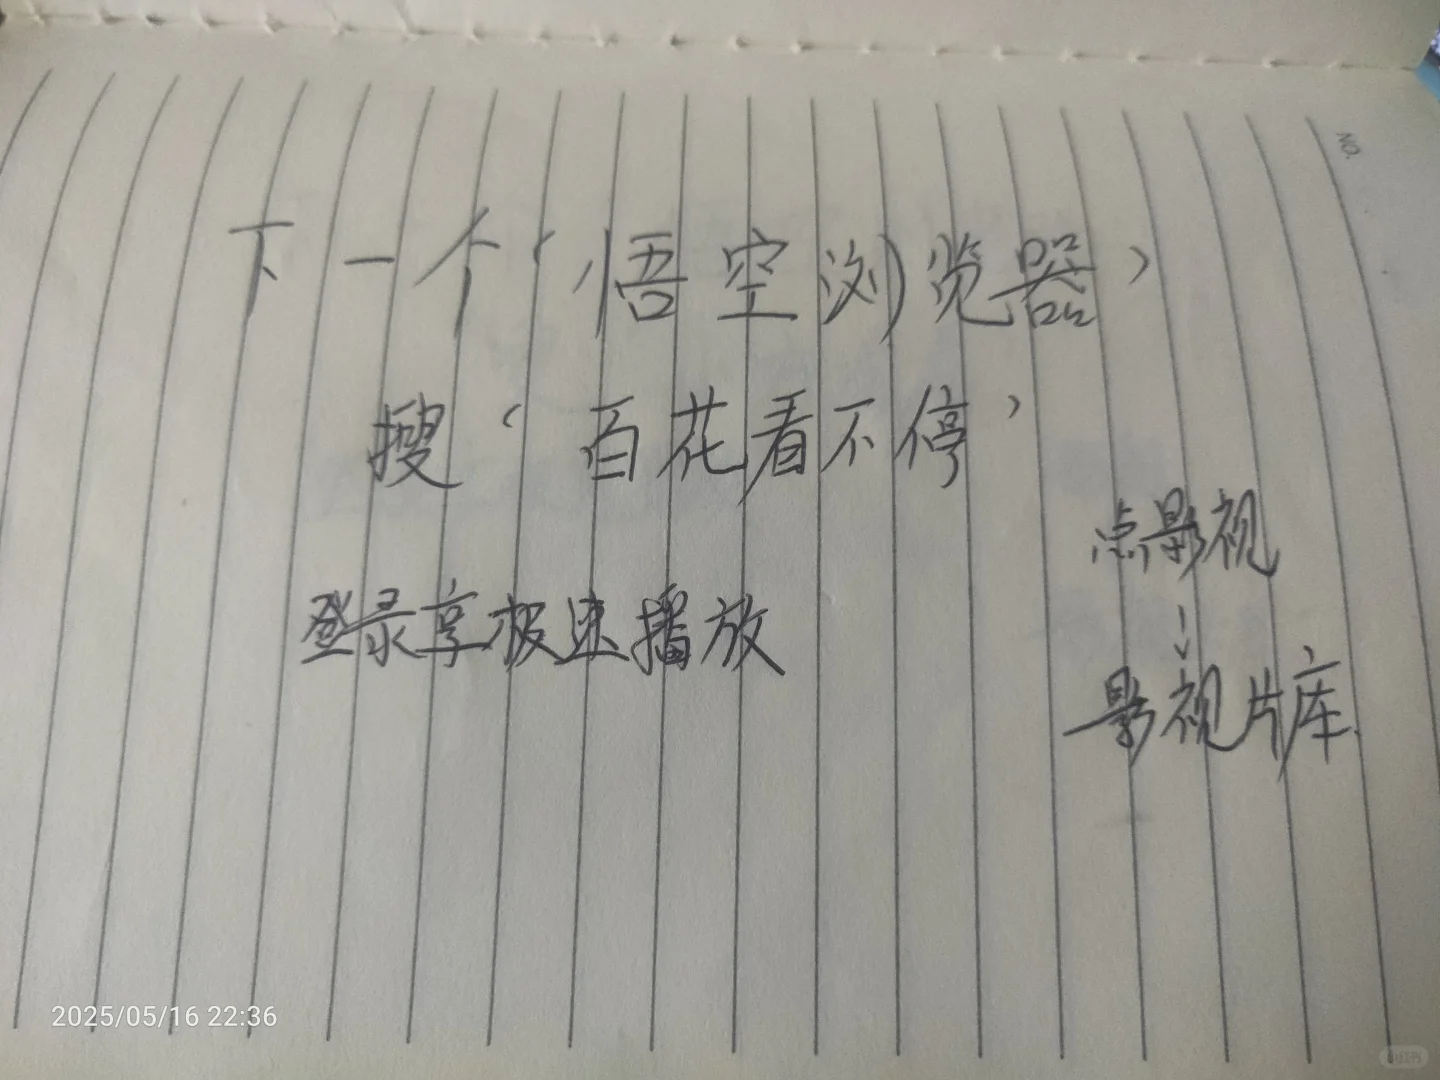 NO.
下一个‘悟空浏览器’
搜‘百花看不停’
点影视
↓
影视片库
登录享极速播放
2025/05/16 22:36
小红书